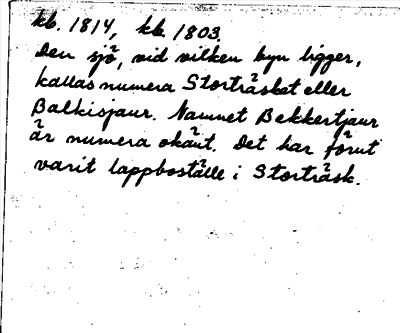 kb. 1814, kb. 1803.
Den sjö, vid vilken byn ligger,
kallas numera Storträsket eller
Balkisjaur. Namnet Bekkertjaur
är numera okänt. Det har förut
varit lappboställe i Storträsk.